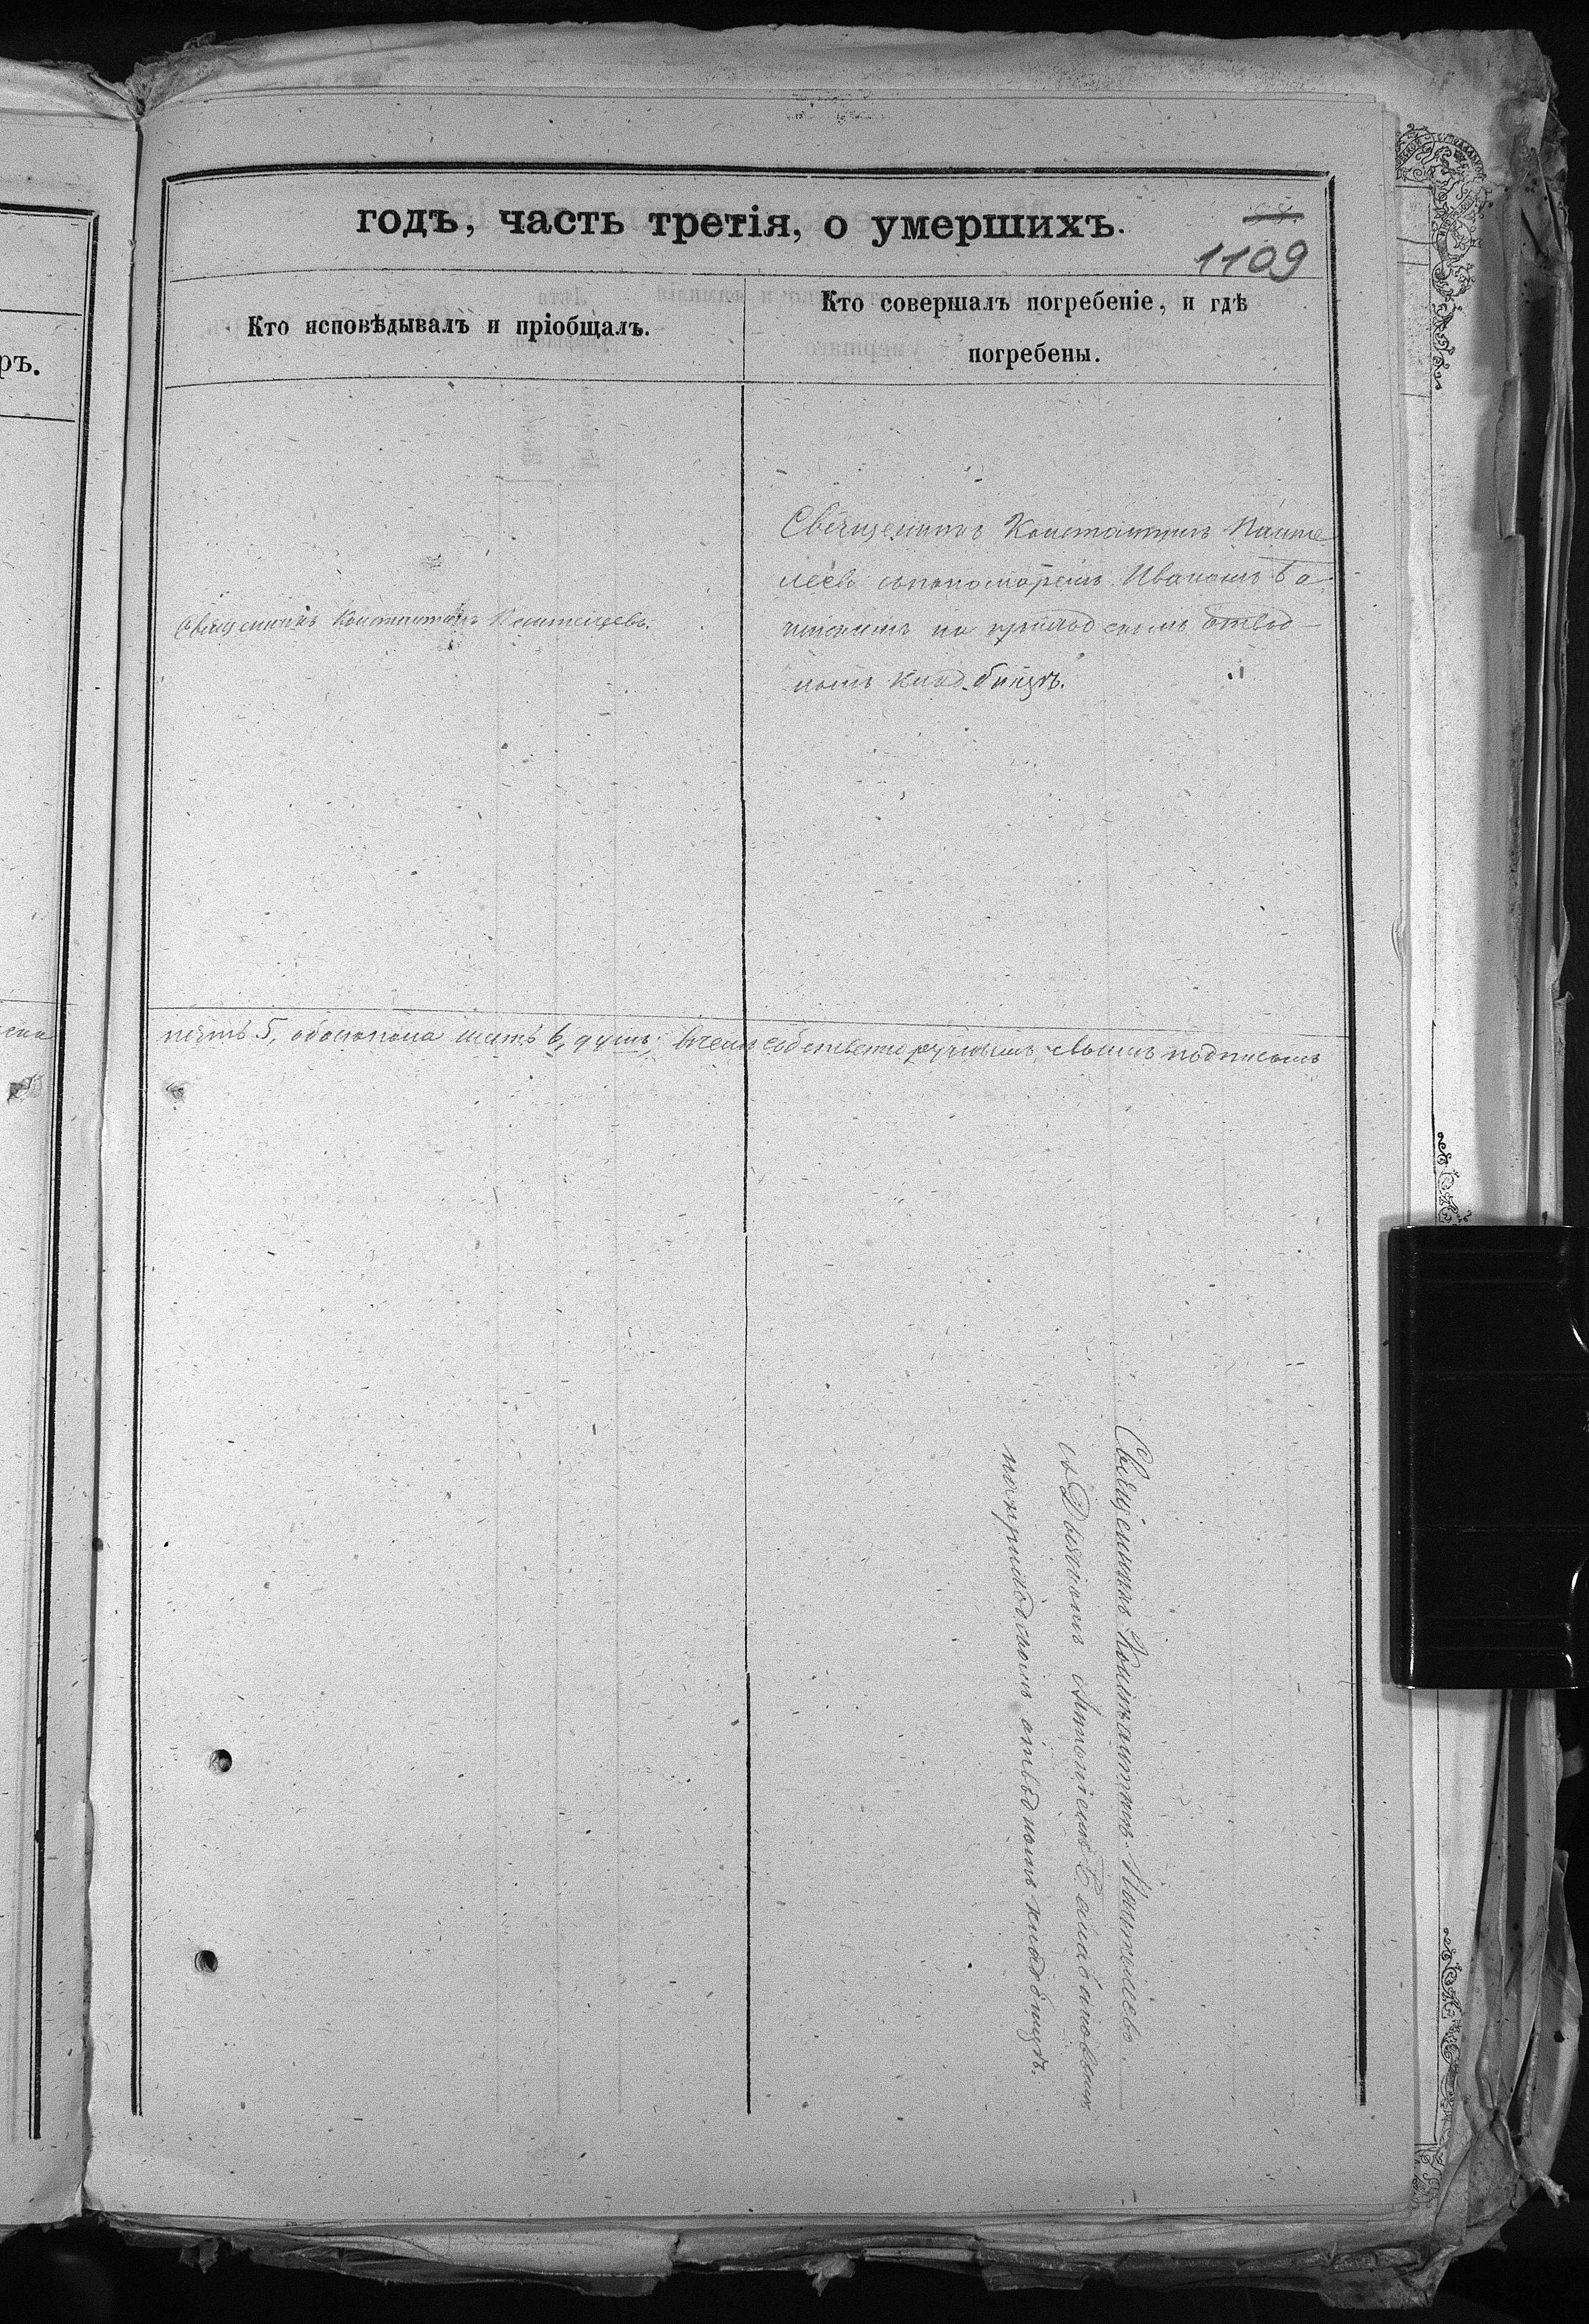 годъ, часть третія, о умершихъ.
1109
Кто исповѣдывалъ и пріобщалъ.
Кто совершалъ погребеніе, и гдѣ
погребены.
ръ.
Священникъ Константинъ Пантелѣевъ.
Священникъ Константинъ Панте
лѣевъ съ пономаремъ Иваномъ
на приходскомъ отвод
номъ кладбищѣ.
пять 5, обоего пола шесть 6, душъ; въ чемъ собственноручнымъ своимъ подписомъ
Священникъ Константинъ Пантелѣевъ
съ Дьякономъ Антоніемъ
на приходскомъ отводномъ кладбищѣ.